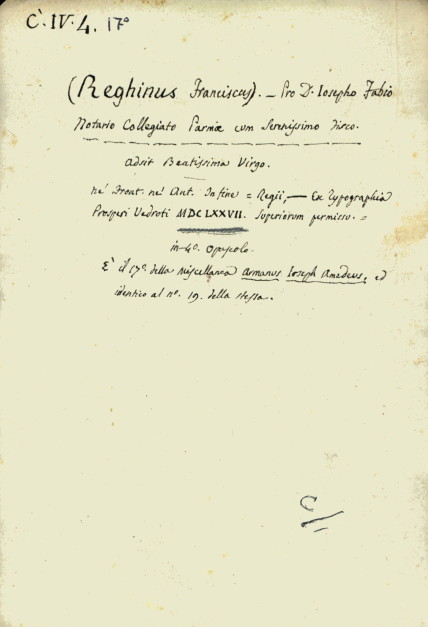 C. IV. 4. 17°
(Reghinus Franciscus). — Pro D. Iosepho Fabio
Notario Collegiato Parmæ cum Serenissimo Fisco.
Adsit Beatissima Virgo.
nè Front. nè Ant. In fine = Regii, — Ex Typographia
Prosperi Vedroti MDCLXXVII. Superiorum permissu. =
in-4°. Opuscolo.
È il 17°. della Miscellanea Armanus Ioseph Amedeus, ed
identico al n°. 19. della stessa.
C